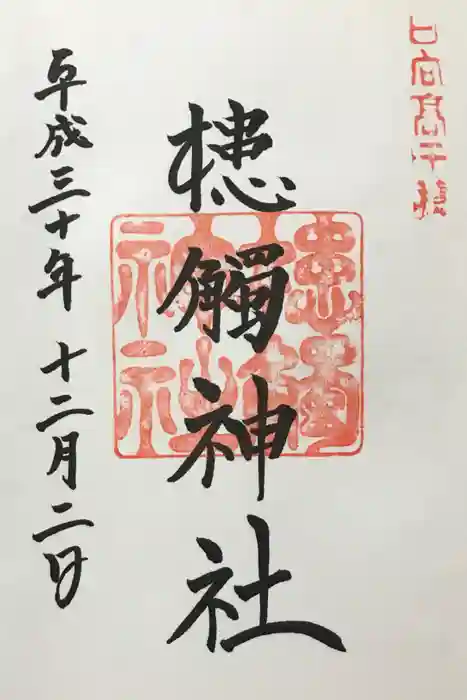 日向高千穂
槵觸神社
平成三十年十二月二日